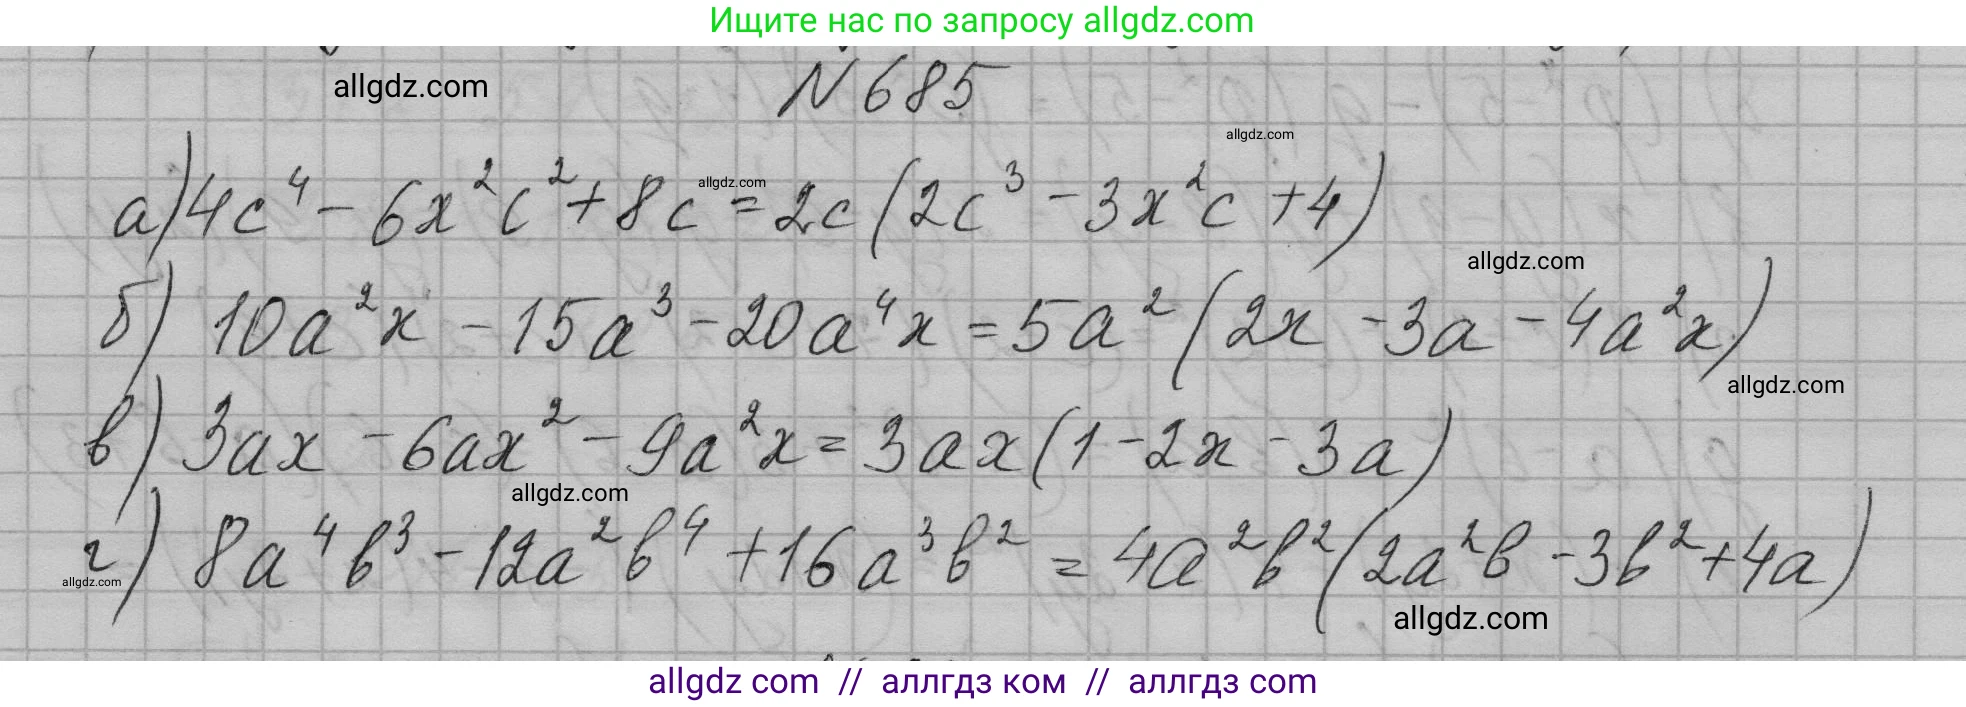 Ищите нас по запросу allgdz.com
allgdz.com
N 685
allgdz.com
allgdz.com
а) 4c⁴ - 6x²c² + 8c = 2c (2c³ - 3x²c + 4)
allgdz.com
б) 10a²x - 15a³ - 20a⁴x = 5a² (2x - 3a - 4a²x)
allgdz.com
в) 3ax - 6ax² - 9a²x = 3ax (1 - 2x - 3a)
allgdz.com
г) 8a⁴b³ - 12a²b⁴ + 16a³b² = 4a²b² (2a²b - 3b² + 4a)
allgdz.com
allgdz.com
allgdz com // аллгдз ком // аллгдз com